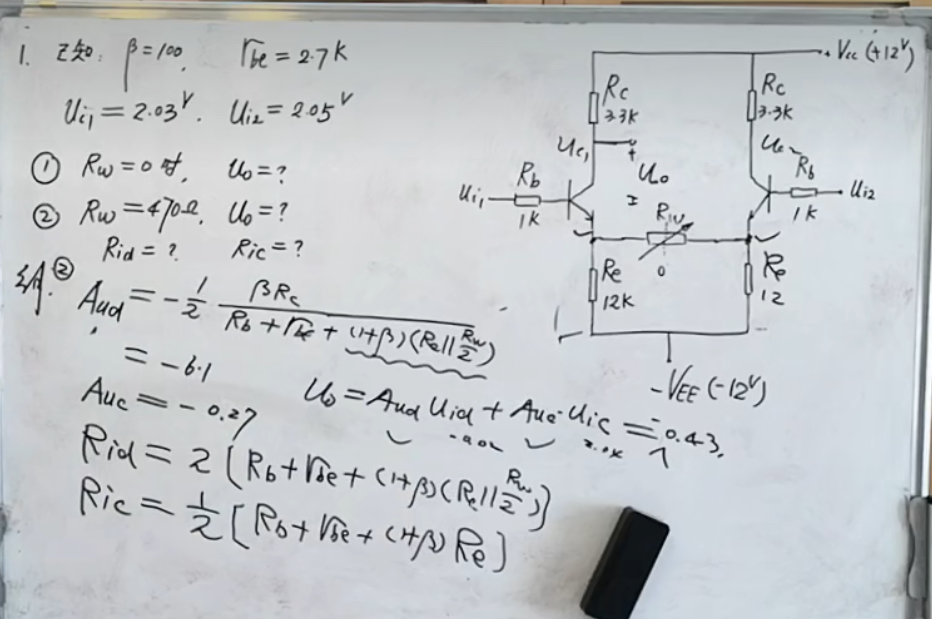 1. 已知: β=100, rbe = 2.7K
Ui1 = 2.03V. Ui2 = 2.05V
① Rw=0时, Uo=?
② Rw=470Ω, Uo=?
Rid=? Ric=?
解②
Aud = -1/2 βRc/(Rb+rbe+(1+β)(Re||Rw/2))
= -6.1
Auc = -0.27
Uo = Aud Uid + Auc·Uic = -0.43.
Rid = 2[Rb+rbe+(1+β)(Re||Rw/2)]
Ric = 1/2[Rb+rbe+(1+β)Re]
+Vcc (+12V)
Rc
3.3K
Rc
3.3K
Uc1
+
Uo
Ui1
Rb
1K
Rb
1K
Ui2
Rw
0
Re
12K
Re
12
-VEE(-12V)